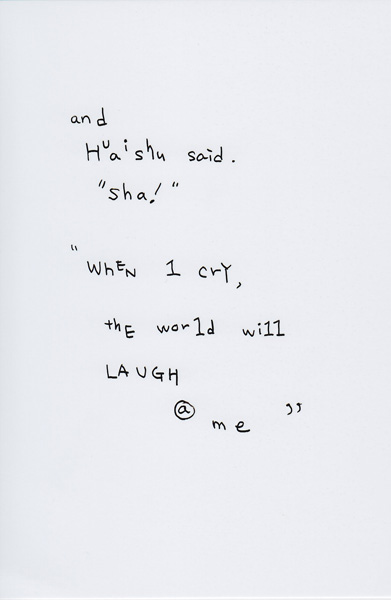 and
Huaishu said.
"Sha!"
"WhEN 1 crY,
thE world will
LAUGH
@ me"